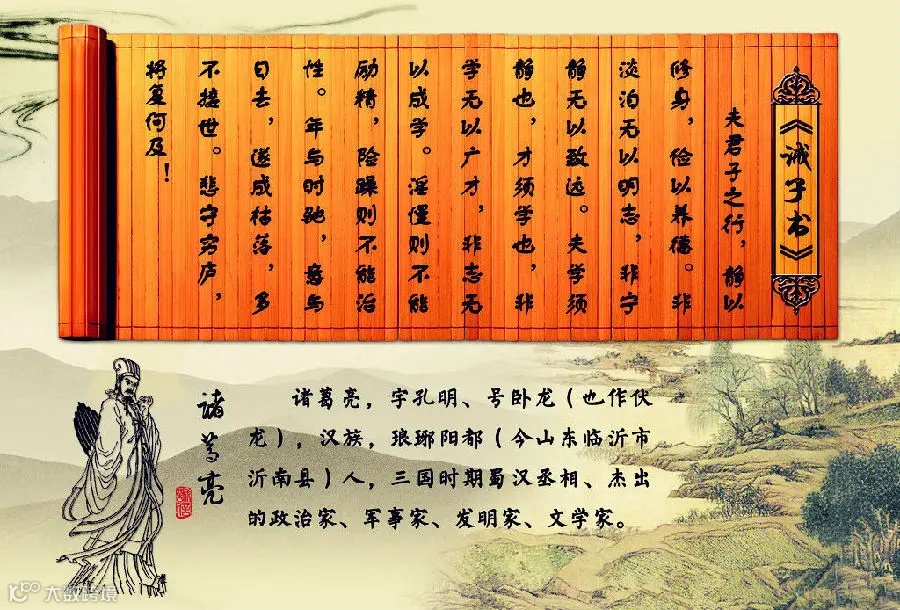 《诫子书》
夫君子之行，静以
修身，俭以养德。非
淡泊无以明志，非宁
静无以致远。夫学须
静也，才须学也，非
学无以广才，非志无
以成学。淫慢则不能
励精，险躁则不能治
性。年与时驰，意与
日去，遂成枯落，多
不接世。悲守穷庐，
将复何及！
诸葛亮
诸葛亮，字孔明、号卧龙（也作伏
龙），汉族，琅琊阳都（今山东临沂市
沂南县）人，三国时期蜀汉丞相、杰出
的政治家、军事家、发明家、文学家。
大数跨境